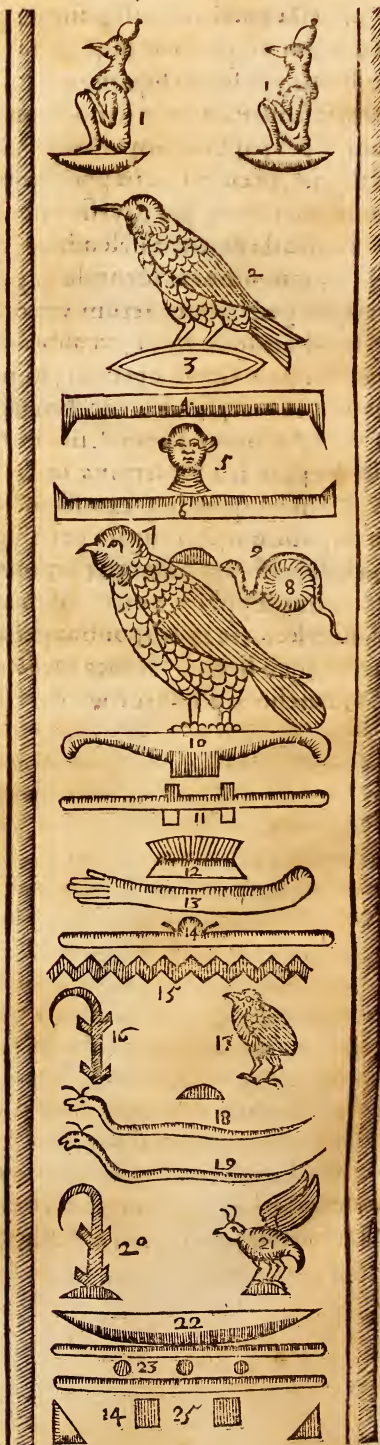 1 1
2
3
4
5
6
7 9
8
10
11
12
13
14
15
16 17
18
19
20 21
22
23
14 25